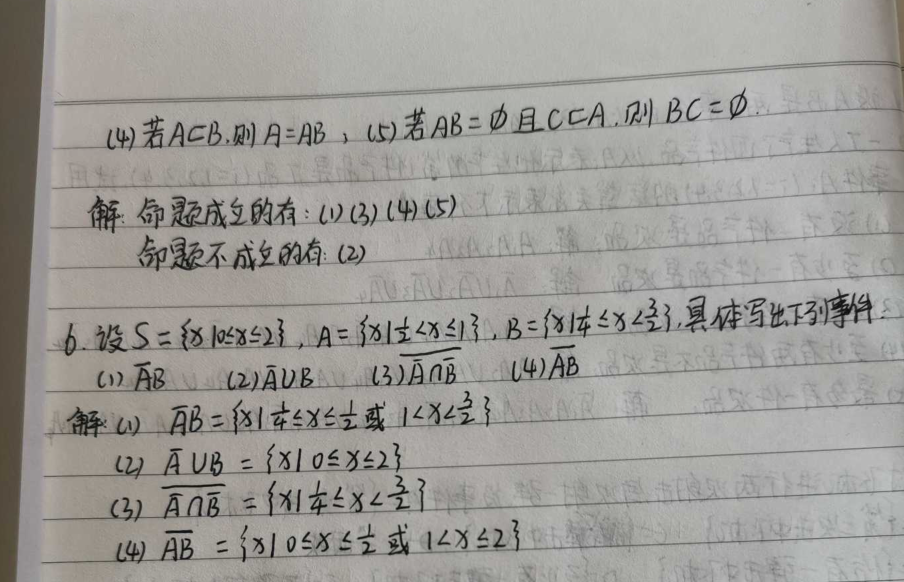 (4)若A⊂B.则A=AB，(5)若AB=∅且C⊂A.则BC=∅.
解:命题成立的有:(1)(3)(4)(5)
命题不成立的有:(2)
6.设S={x|0≤x≤2},A={x|½<x≤1},B={x|¼≤x<3/2},具体写出下列事件:
(1) A̅B (2) A̅∪B (3) \overline{A̅∩B̅} (4) \overline{AB}
解:(1) A̅B={x|¼≤x≤½或1<x<3/2}
(2) A̅∪B={x|0≤x≤2}
(3) \overline{A̅∩B̅}={x|¼≤x<3/2}
(4) \overline{AB}={x|0≤x≤½或1<x≤2}